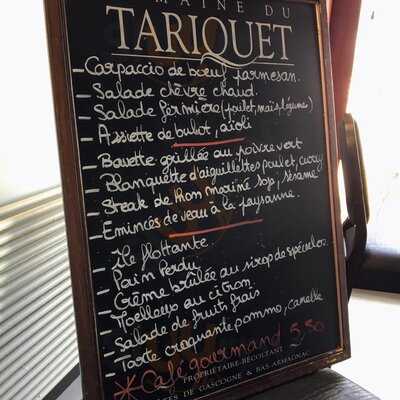 MAINE DU
TARIQUET
- Carpaccio de bœuf parmesan.
- Salade chèvre chaud.
- Salade fermière (poulet, maïs, légumes)
- Assiette de bulot, aïoli
- Bavette grillée au poivre vert
- Blanquette d'aiguillettes poulet, curry
- Steak de thon mariné soja, sésame
- Emincés de veau à la paysanne.
- Ile flottante.
- Pain Perdu
- Crème brûlée au sirop de spéculos.
- Moelleux au citron
- Salade de fruits frais
- Tarte croquante pomme, canelle
* Café gourmand 5,50
PROPRIÉTAIRE-RÉCOLTANT
DE GASCOGNE & BAS-ARMAGNAC